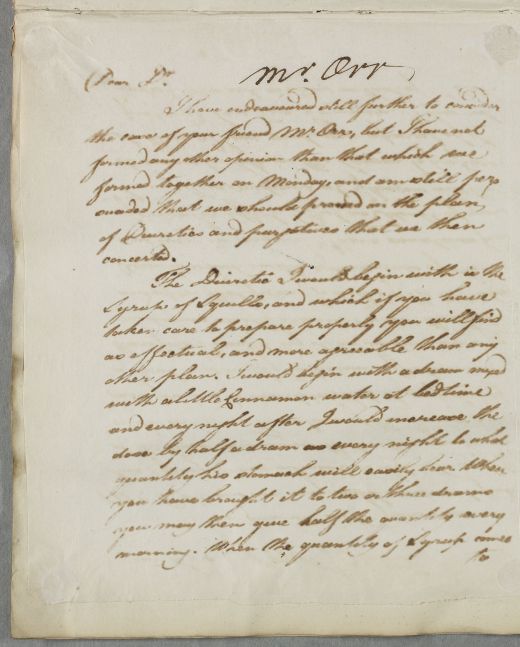 Mr. Orr,
Dear Dr.
I have endeavoured still further to consider
the case of your friend Mr. Orr, but I have not
formed any other opinion than that which we
formed together on Monday, and am still per-
suaded that we should proceed on the plan,
of Diuretics and purgatives that we then
concerted.
The Diuretic I would begin with is the
Syrup of Squills, and which if you have
taken care to prepare properly you will find
as effectual, and more agreeable than any
other plan. I would begin with a dram mixed
with a little Cinnamon water at bedtime
and every night after I would increase the
dose by half a dram as every night to what
quantity his stomach will easily bear. When
you have brought it to two or three drams
you may then give half the quantity every
morning. When the quantity of Syrup comes
to